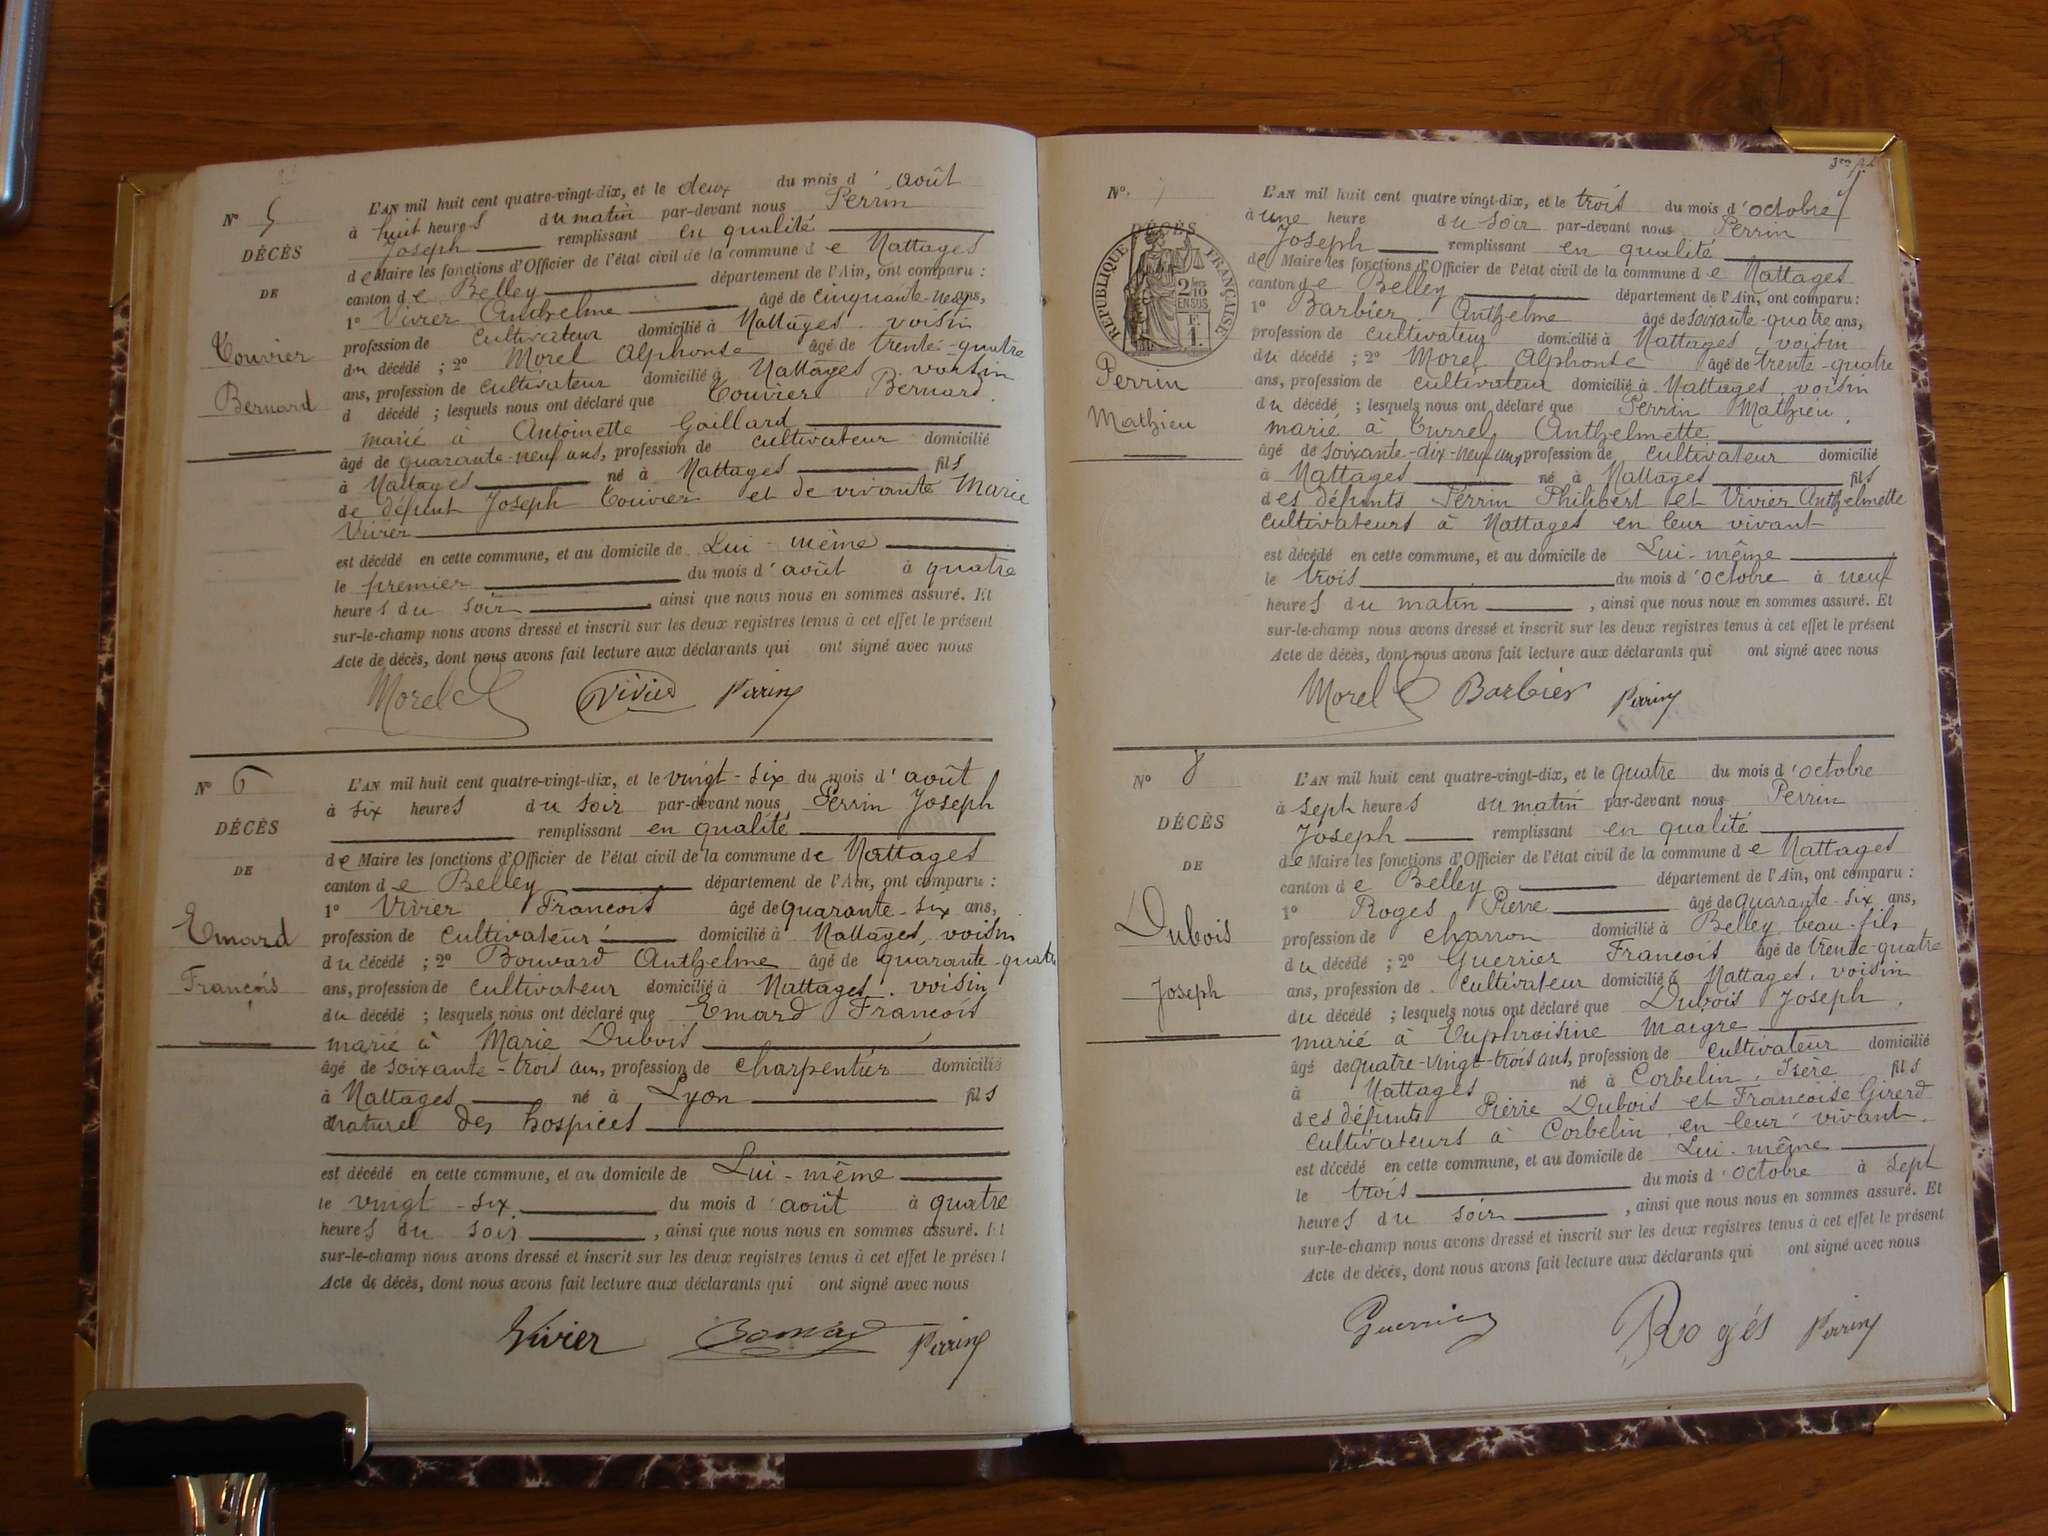 N° 5
DÉCÈS
DE
Touvier
Bernard
L'AN mil huit cent quatre-vingt-dix, et le deux du mois d'août
à huit heures du matin par-devant nous Perrin
Joseph remplissant en qualité
de Maire les fonctions d'Officier de l'état civil de la commune de Nattages
canton de Belley département de l'Ain, ont comparu :
1° Vivier Anthelme âgé de cinquante-neuf ans,
profession de cultivateur domicilié à Nattages, voisin
du décédé ; 2° Morel Alphonse âgé de trente-quatre
ans, profession de cultivateur domicilié à Nattages, voisin
d décédé ; lesquels nous ont déclaré que Touvier Bernard,
marié à Antoinette Gaillard
âgé de quarante-neuf ans, profession de cultivateur domicilié
à Nattages né à Nattages fils
de défunt Joseph Touvier et de vivante Marie
Vivier
est décédé en cette commune, et au domicile de Lui-même
le premier du mois d'août à quatre
heures du soir, ainsi que nous nous en sommes assuré. Et
sur-le-champ nous avons dressé et inscrit sur les deux registres tenus à cet effet le présent
Acte de décès, dont nous avons fait lecture aux déclarants qui ont signé avec nous
Morel Vivier Perrin
N° 6
DÉCÈS
DE
Emard
François
L'AN mil huit cent quatre-vingt-dix, et le vingt-six du mois d'août
à six heures du soir par-devant nous Perrin Joseph
remplissant en qualité
de Maire les fonctions d'Officier de l'état civil de la commune de Nattages
canton de Belley département de l'Ain, ont comparu :
1° Vivier François âgé de quarante-six ans,
profession de cultivateur domicilié à Nattages, voisin
du décédé ; 2° Bouvard Anthelme âgé de quarante-quatre
ans, profession de cultivateur domicilié à Nattages, voisin
du décédé ; lesquels nous ont déclaré que Emard François
marié à Marie Dubois
âgé de soixante-trois ans, profession de charpentier domicilié
à Nattages né à Lyon fils
naturel des hospices
est décédé en cette commune, et au domicile de Lui-même
le vingt-six du mois d'août à quatre
heures du soir, ainsi que nous nous en sommes assuré. Et
sur-le-champ nous avons dressé et inscrit sur les deux registres tenus à cet effet le présent
Acte de décès, dont nous avons fait lecture aux déclarants qui ont signé avec nous
Vivier Bouvard Perrin
N° 7
DÉCÈS
RÉPUBLIQUE FRANÇAISE
2/10 EN SUS
F. 1.
Perrin
Mathieu
L'AN mil huit cent quatre vingt-dix, et le trois du mois d'octobre
à une heure du soir par-devant nous Perrin
Joseph remplissant en qualité
de Maire les fonctions d'Officier de l'état civil de la commune de Nattages
canton de Belley département de l'Ain, ont comparu :
1° Barbier Anthelme âgé de soixante-quatre ans,
profession de cultivateur domicilié à Nattages, voisin
du décédé ; 2° Morel Alphonse âgé de trente-quatre
ans, profession de cultivateur domicilié à Nattages, voisin
du décédé ; lesquels nous ont déclaré que Perrin Mathieu,
marié à Turrel Anthelmette
âgé de soixante-dix-neuf ans, profession de cultivateur domicilié
à Nattages né à Nattages fils
des défunts Perrin Philibert et Vivier Anthelmette
cultivateurs à Nattages en leur vivant
est décédé en cette commune, et au domicile de Lui-même
le trois du mois d'octobre à neuf
heures du matin, ainsi que nous nous en sommes assuré. Et
sur-le-champ nous avons dressé et inscrit sur les deux registres tenus à cet effet le présent
Acte de décès, dont nous avons fait lecture aux déclarants qui ont signé avec nous
Morel Barbier Perrin
N° 8
DÉCÈS
DE
Dubois
Joseph
L'AN mil huit cent quatre-vingt-dix, et le quatre du mois d'octobre
à sept heures du matin par-devant nous Perrin
Joseph remplissant en qualité
de Maire les fonctions d'Officier de l'état civil de la commune de Nattages
canton de Belley département de l'Ain, ont comparu :
1° Roges Pierre âgé de quarante-six ans,
profession de charron domicilié à Belley, beau-fils
du décédé ; 2° Guerrier François âgé de trente-quatre
ans, profession de cultivateur domicilié à Nattages, voisin
du décédé ; lesquels nous ont déclaré que Dubois Joseph,
marié à Euphroisine Maigre
âgé de quatre-vingt-trois ans, profession de cultivateur domicilié
à Nattages né à Corbelin, Isère fils
des défunts Pierre Dubois et Françoise Girerd
cultivateurs à Corbelin en leur vivant.
est décédé en cette commune, et au domicile de Lui-même
le trois du mois d'octobre à sept
heures du soir, ainsi que nous nous en sommes assuré. Et
sur-le-champ nous avons dressé et inscrit sur les deux registres tenus à cet effet le présent
Acte de décès, dont nous avons fait lecture aux déclarants qui ont signé avec nous
Guerrier Rogés Perrin